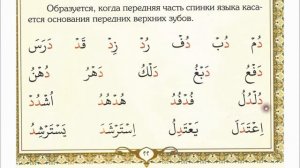 Образуется, когда передняя часть спинки языка каса-
ется основания передних верхних зубов.
دُمْ دُبْ دُفْ رُدْ زِدْ قَدْ دَرَسَ
دَفْعُ دَبْغُ دَلْكُ دَهْرُ دُهْنُ
دُلْدُلُ فُدْفُدُ هُدْهُدُ اُشْدُدْ
اِعْتَدَلَ يَعْتَدِلُ اِسْتَرْشَدَ يَسْتَرْشِدُ